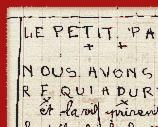 LE PETIT PA
NOUS AVONS
REQUIADUR
et la vil prirent